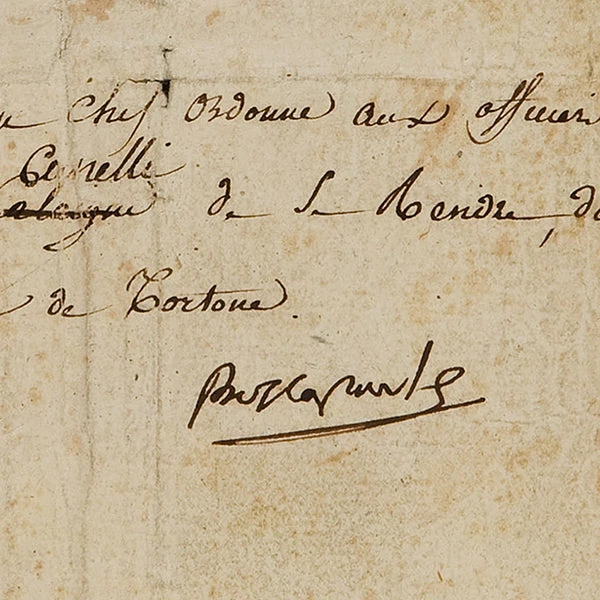 Chef ordonne aux officier
Cepelli
de se rendre, d
de Tortone.
Buonaparte